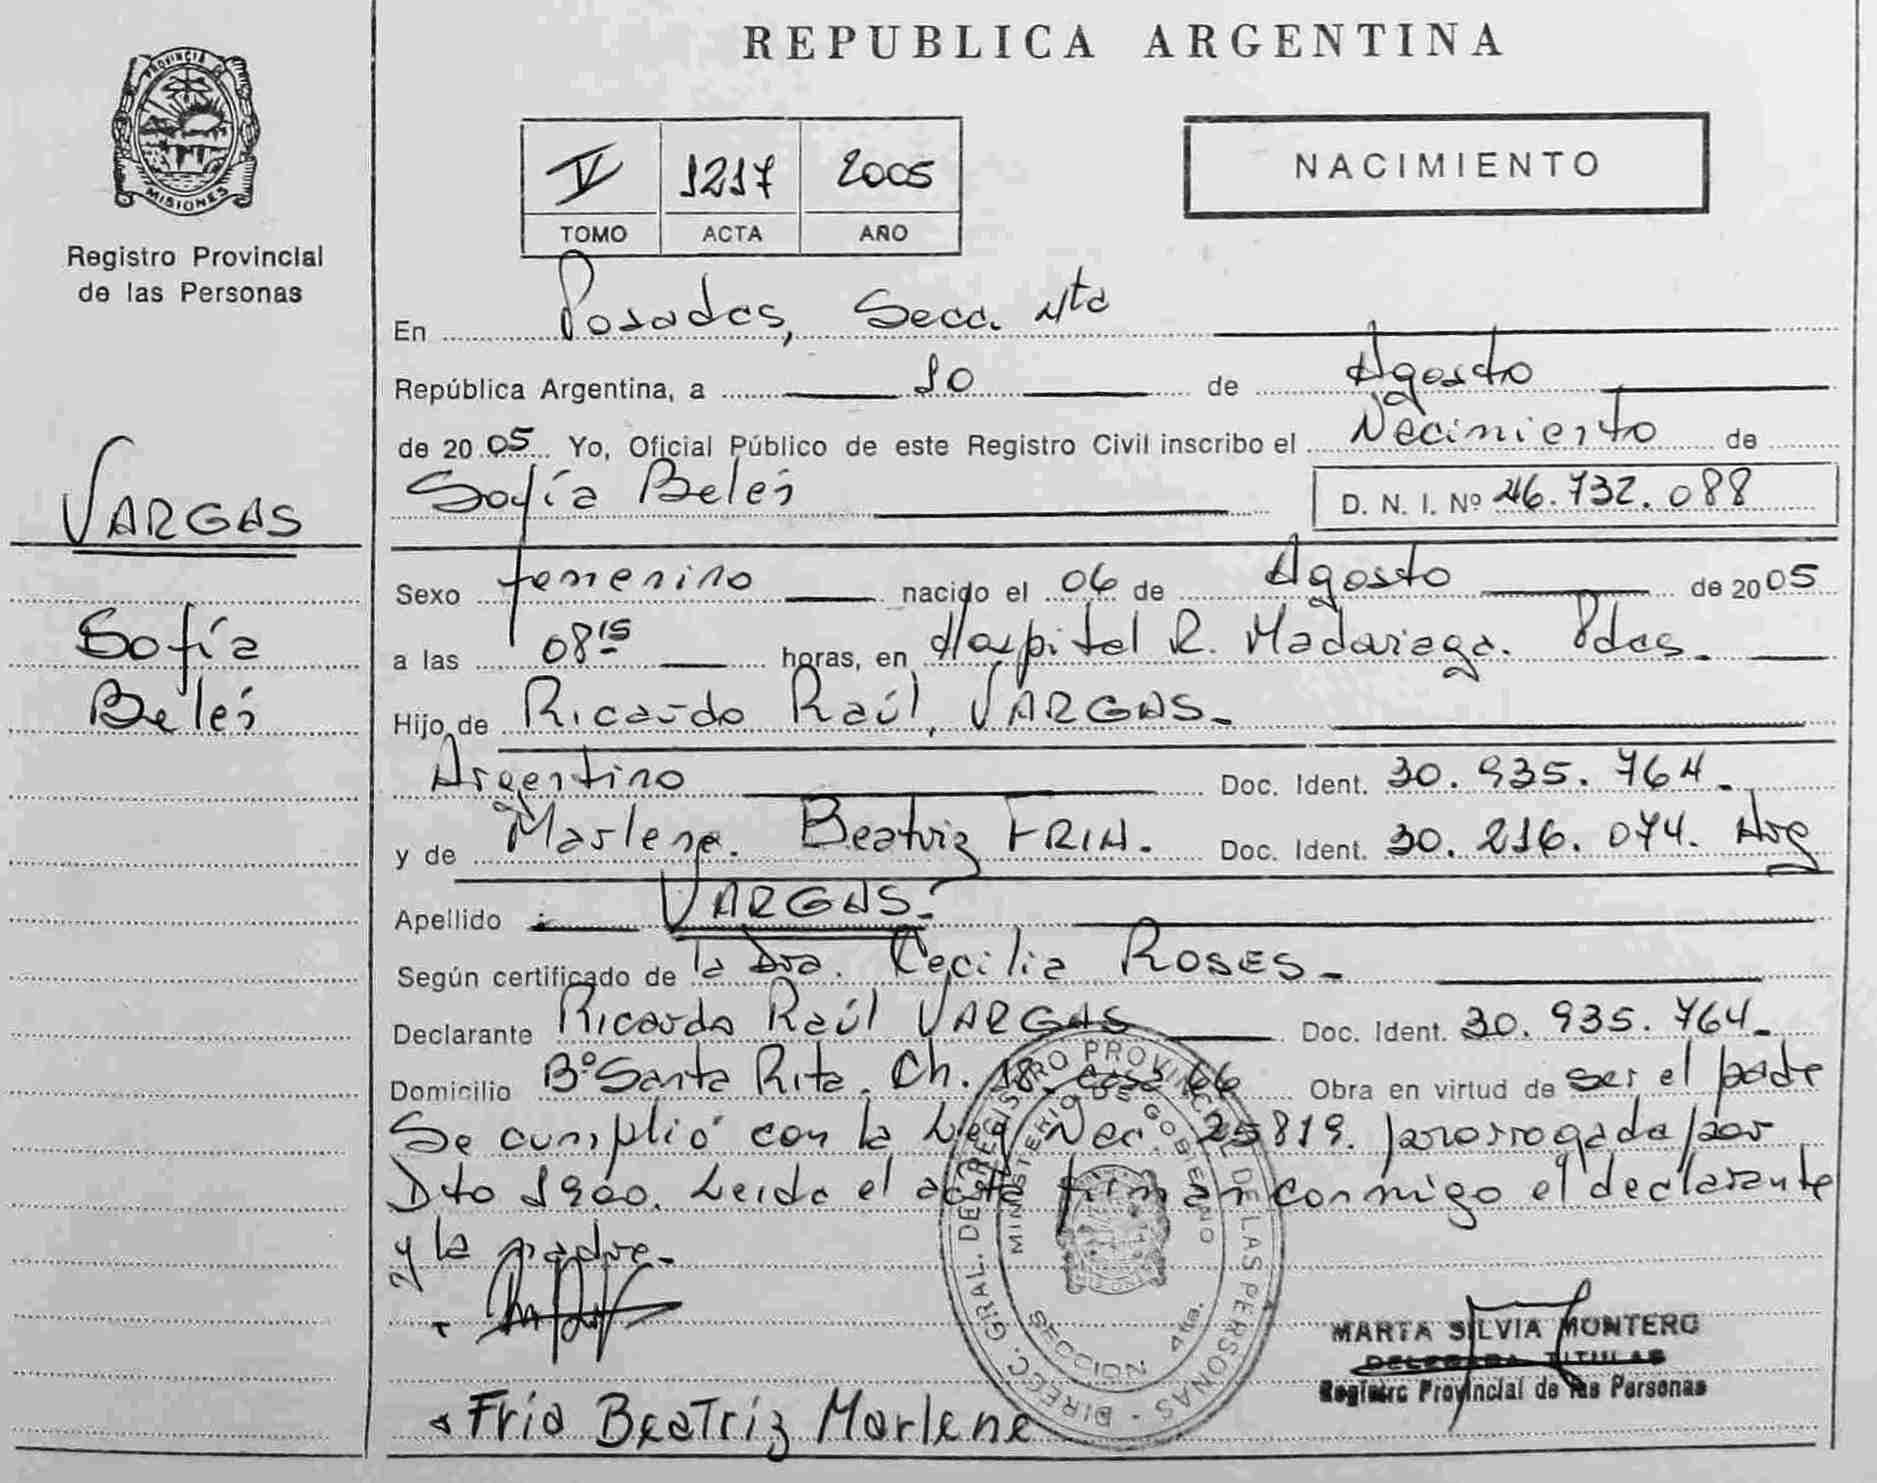 REPUBLICA ARGENTINA
PROVINCIA DE
MISIONES
Registro Provincial
de las Personas
V 1217 2005
TOMO ACTA AÑO
NACIMIENTO
En Posadas, Secc. 4ta
República Argentina, a 10 de Agosto
de 2005 Yo, Oficial Público de este Registro Civil inscribo el Nacimiento de
Sofía Belén
D. N. I. Nº 46.732.088
VARGAS
Sofía
Belén
Sexo femenino nacido el 06 de Agosto de 2005
a las 08 15 horas, en Hospital R. Madariaga. Pdas.
Hijo de Ricardo Raúl, VARGAS.
Argentino Doc. Ident. 30.935.764.
y de Marlene. Beatriz FRIA. Doc. Ident. 30.216.074. Arg
Apellido : VARGAS.
Según certificado de la Dra. Cecilia ROSES.
Declarante Ricardo Raúl VARGAS Doc. Ident. 30.935.764.
Domicilio Bº Santa Rita. Ch. 18. casa 66 Obra en virtud de ser el padre
Se cumplió con la Ley Nac. 25819. prorrogada por
Dto 1900. Leida el acta firman conmigo el declarante
y la madre.
DIRECC. GRAL. DEL REGISTRO PROVINCIAL DE LAS PERSONAS
MINISTERIO DE GOBIERNO
SECCION 4ta.
MARTA SILVIA MONTERO
DELEGADA TITULAR
Registro Provincial de las Personas
Fria BeaTriz Marlene